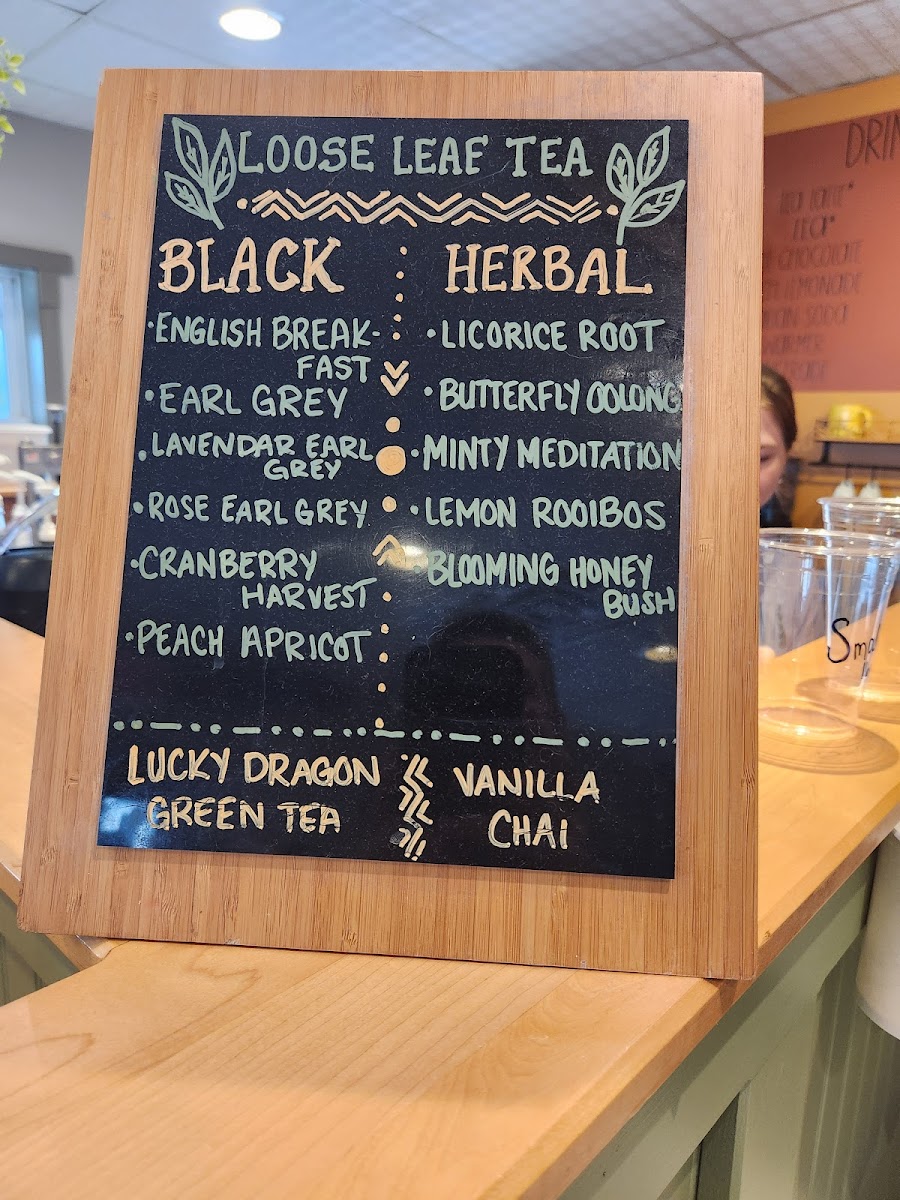 LOOSE LEAF TEA
BLACK
•ENGLISH BREAK-
FAST
•EARL GREY
•LAVENDAR EARL
GREY
•ROSE EARL GREY
•CRANBERRY
HARVEST
•PEACH APRICOT
HERBAL
•LICORICE ROOT
•BUTTERFLY OOLONG
•MINTY MEDITATION
•LEMON ROOIBOS
•BLOOMING HONEY
BUSH
LUCKY DRAGON
GREEN TEA
VANILLA
CHAI
CHOCOLATE
LEMONADE
SODA